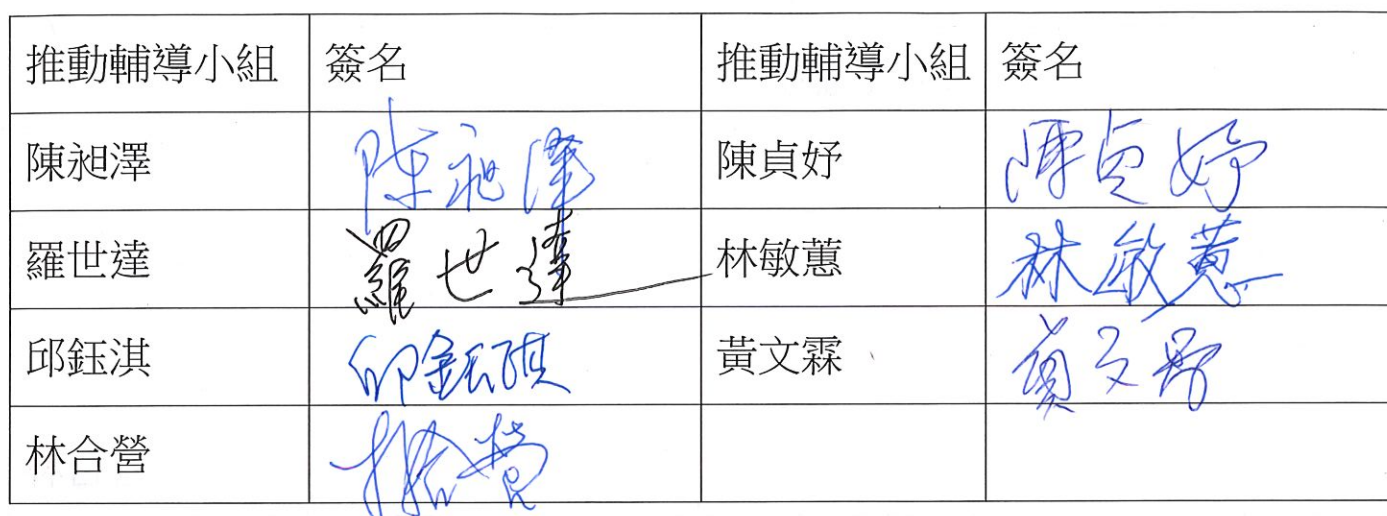 推動輔導小組 簽名 推動輔導小組 簽名
陳昶澤 陳昶澤 陳貞妤 陳貞妤
羅世達 羅世達 林敏蕙 林敏蕙
邱鈺淇 邱鈺淇 黃文霖 黃文霖
林合營 林合營